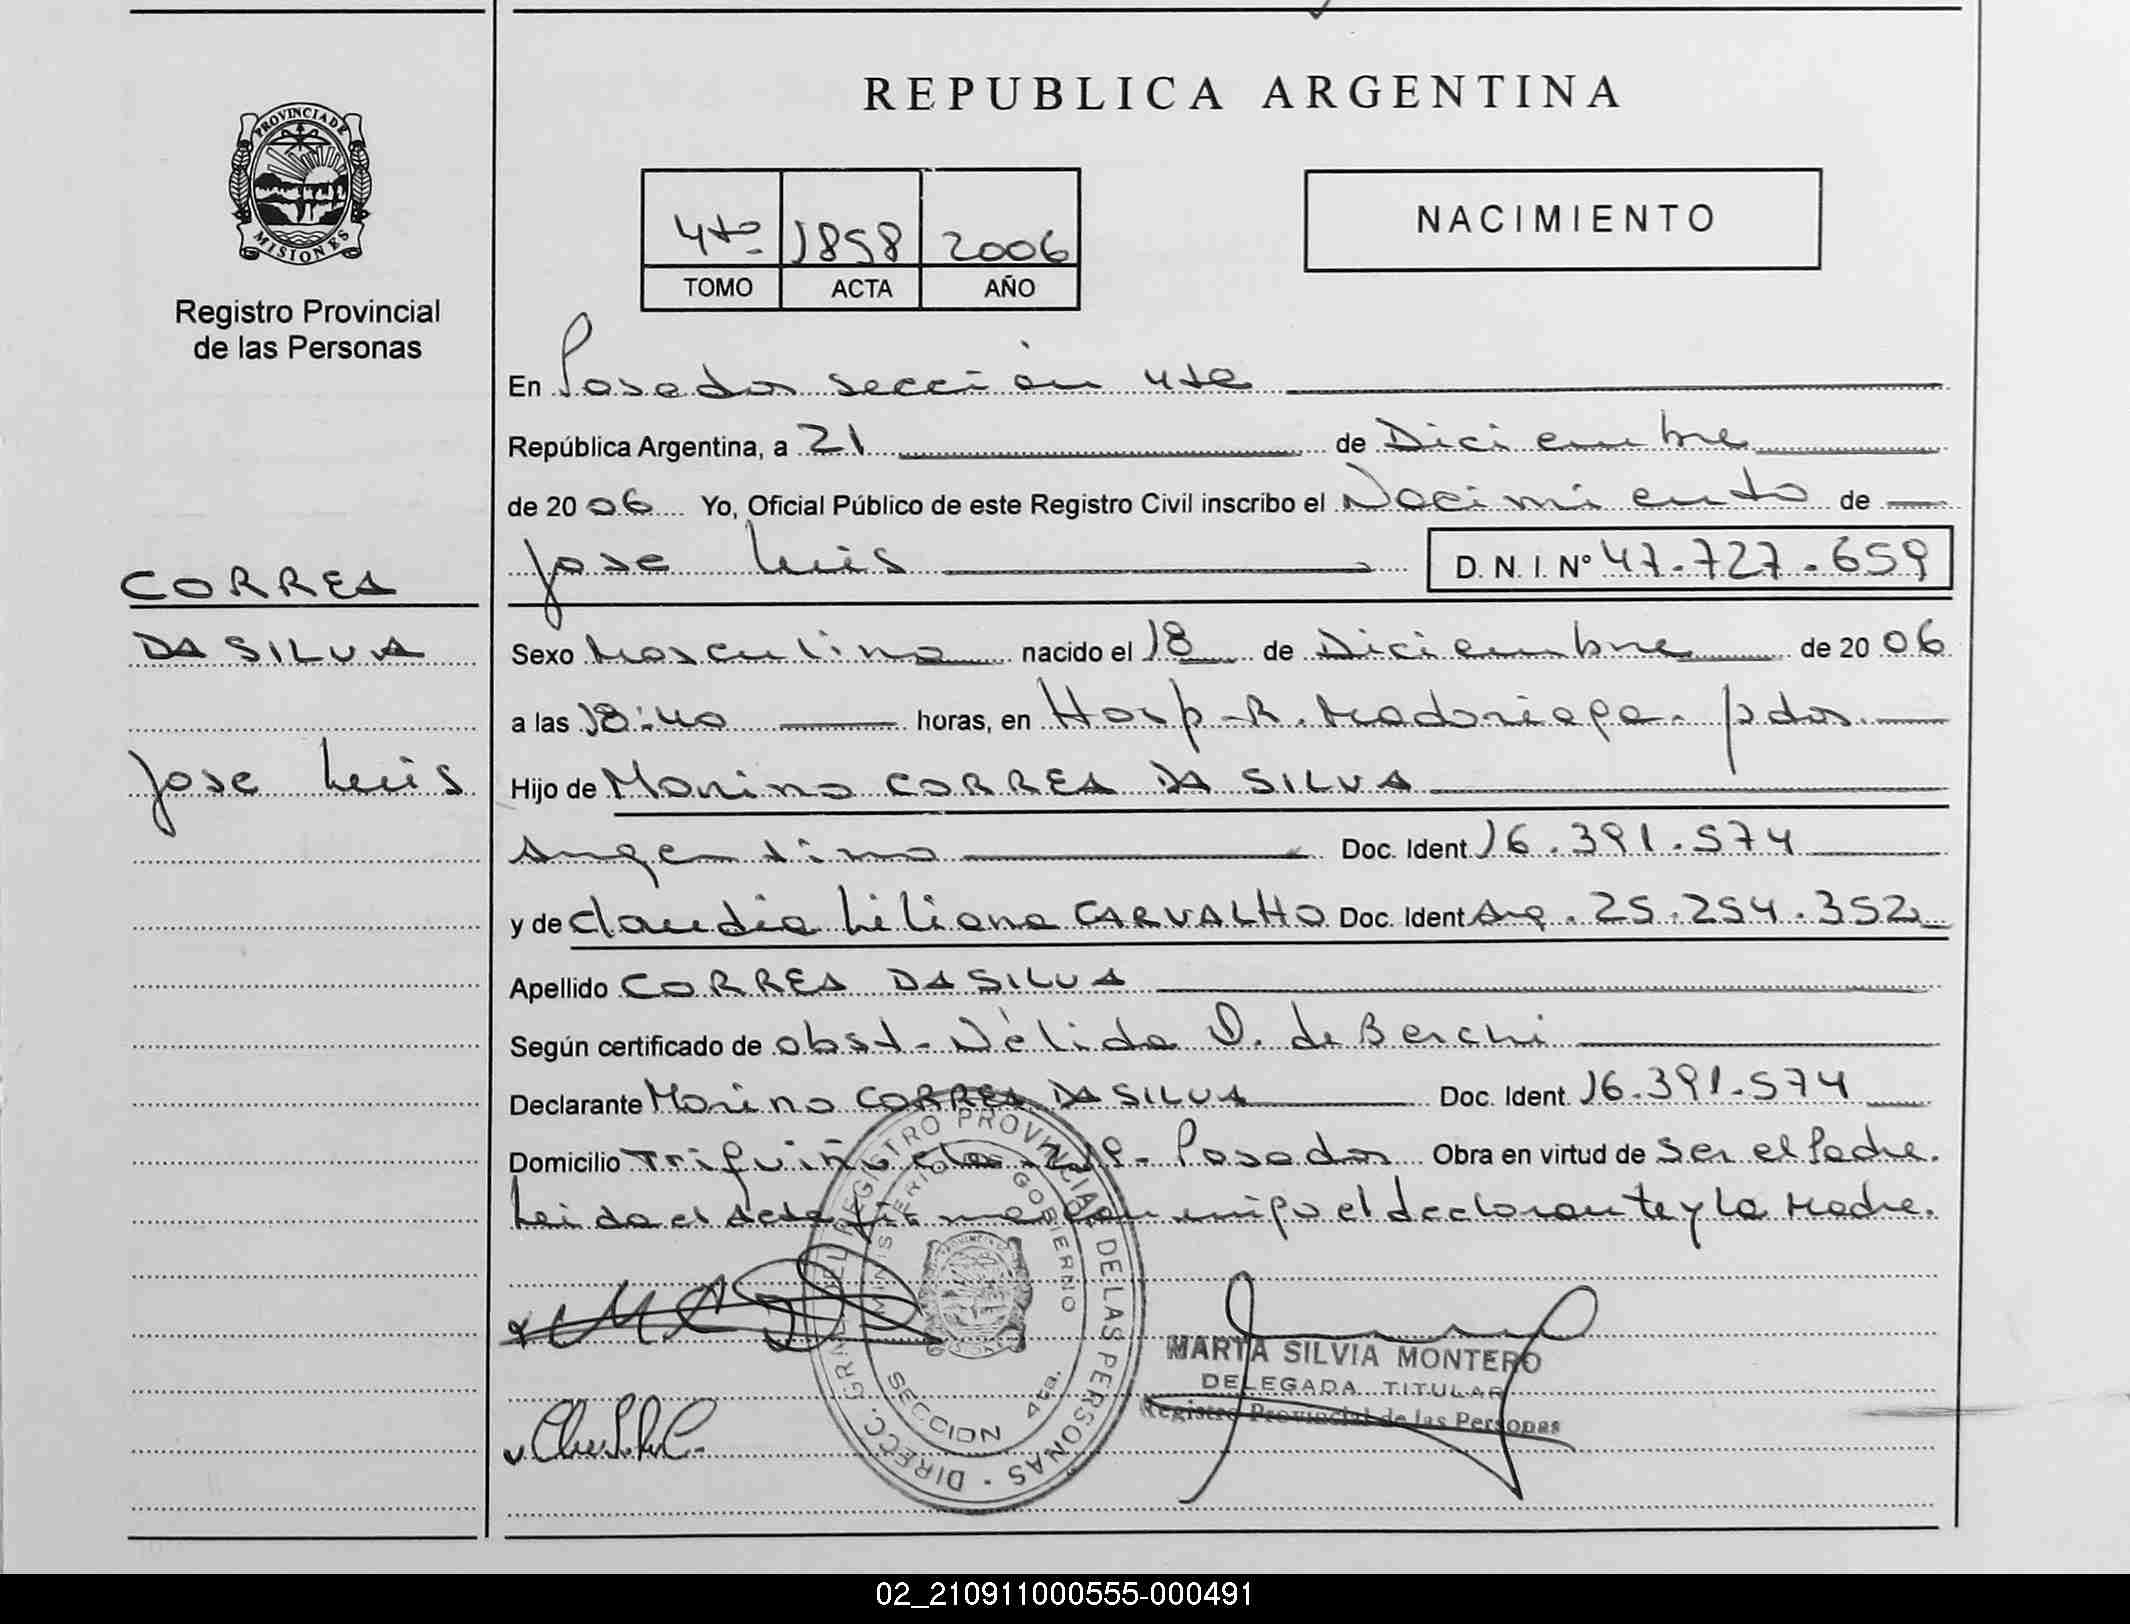 REPUBLICA ARGENTINA
PROVINCIA DE
MISIONES
Registro Provincial
de las Personas
4to 1858 2006
TOMO ACTA AÑO
NACIMIENTO
En Posadas sección 4ta
República Argentina, a 21 de Diciembre
de 2006 Yo, Oficial Público de este Registro Civil inscribo el Nacimiento de
Jose Luis D. N. I. Nº 47.727.659
CORREA
DA SILVA
Jose Luis
Sexo Masculino nacido el 18 de Diciembre de 2006
a las 18:40 horas, en Hosp. R. Madariaga. pdas.
Hijo de Marino CORREA DA SILVA
Argentino Doc. Ident. 16.391.574
y de Claudia Liliana CARVALHO Doc. Ident. Arg. 25.254.352
Apellido CORREA DA SILVA
Según certificado de obst. Nélida D. de Berchi
Declarante Marino CORREA DA SILVA Doc. Ident. 16.391.574
Domicilio Posadas Obra en virtud de ser el Padre.
Leida el Acta firma conmigo el declarante y la Madre.
DIRECC. GRAL. DEL REGISTRO PROVINCIAL DE LAS PERSONAS
MINISTERIO GOBIERNO
SECCION 4ta.
MARTA SILVIA MONTERO
DELEGADA TITULAR
Registro Provincial de las Personas
02_210911000555-000491